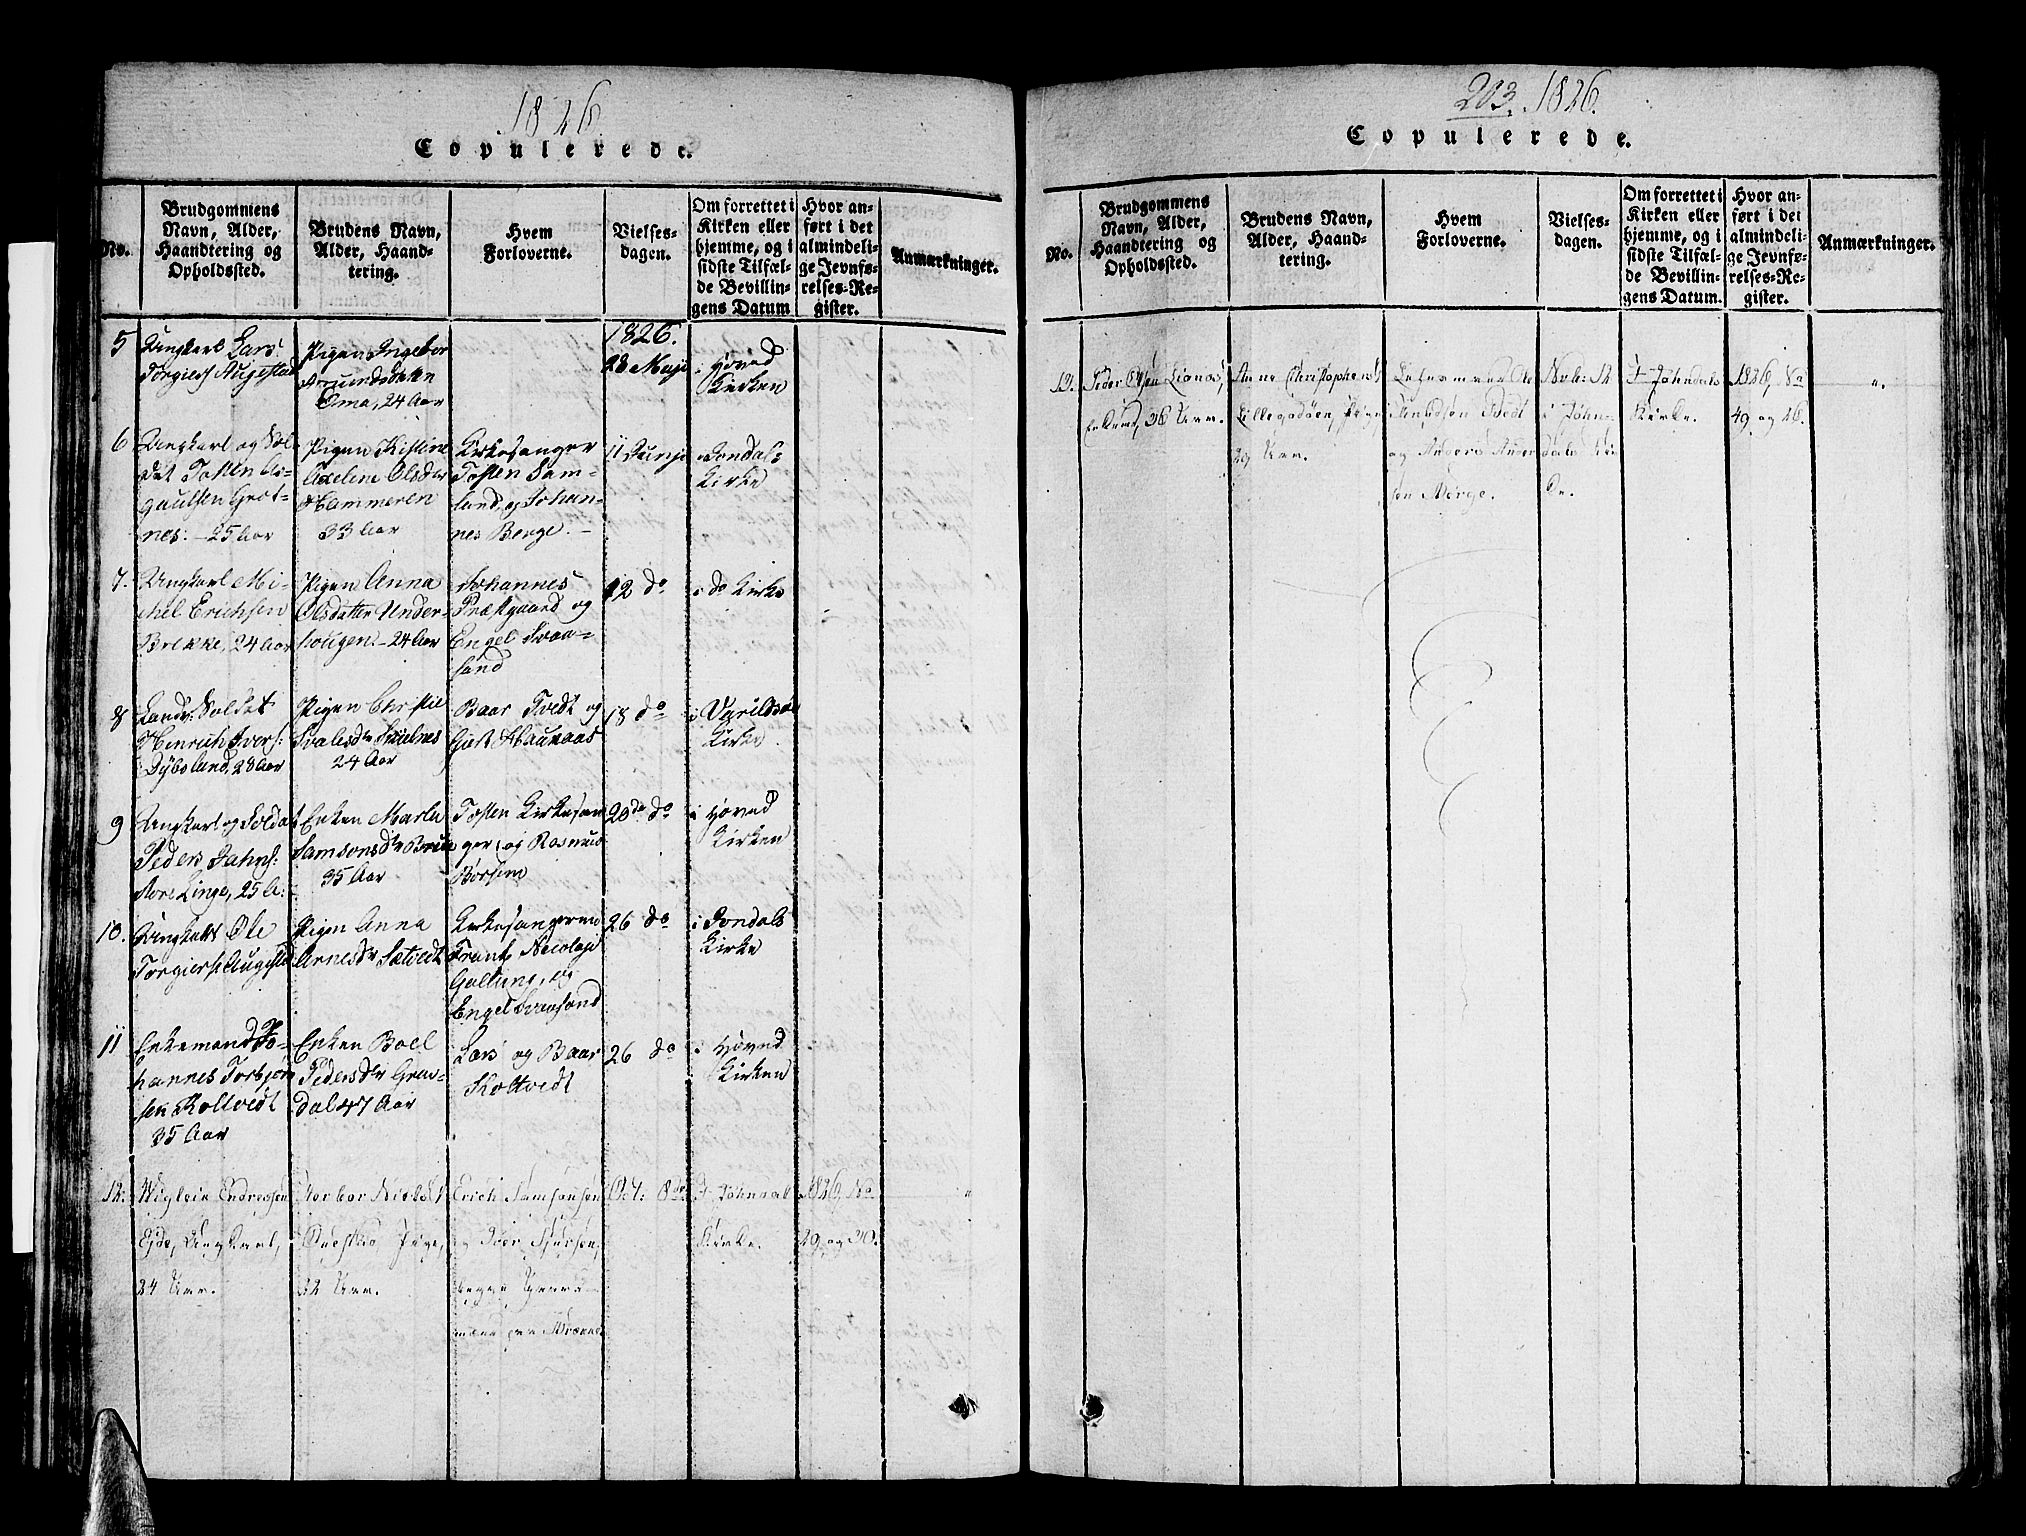 1826
Copulerede.
No.
Brudgommens
Navn, Alder,
Haandtering og
Opholdssted.
Brudens Navn,
Alder, Haand-
tering.
Hvem
Forloverne.
Vielses-
dagen.
Om forrettet i
Kirken eller
hjemme, og i
sidste Tilfæl-
de Bevillin-
gens Datum
Hvor an-
ført i det
almindeli-
ge Jevnfø-
relses-Re-
gister.
Anmærkninger.
5
Ungkarl Lars
Torgiers Augestad
Pigen Ingebor
Aamundsdatter
Oma, 24 Aar
1826.
28 Maji
i Hoved
Kirken
6
Ungkarl og Sol-
dat Tosten
Grot-
nes. - 25 Aar
Pigen Kistine
Axeline Olsdtr
Hammeren
33 Aar
Kirkesanger
Tosten Sam-
land, og Johan-
nes Berge. -
11 Junji
i Jondals
Kirke
7.
Ungkarl Mi-
chel Erichsen
Brekke, 24 Aar
Pigen Anna
Olsdatter Under-
hougen. - 24 Aar
Johannes
Præstgaard og
Engel Svaa-
sand
12 do
i do Kirke
8
Landv: Soldat
Hinrich Ivers:
Dybsland, 28 Aar
Pigen Christie
24 Aar
Baar Tvedt og
18 do
i Varildsøe
Kirke
9
Ungkarl og Soldat
Peders Jahns:
Store Linge, 25 A:
Enken Marta
Samsonsdtr
35 Aar
Tosten Kirkesan-
ger, og Rasmus
Børsem
20de do
i Hoved
Kirken
10.
Ungkarl Ole
Torgiers Augestad
Pigen Anna
Arnesdtr Sætvedt
Kirkesangerne
Frants Nicolaji
Galtung, og
Engel Svaasand
26 do
i Jondals
Kirke
11
Enkemand Jo-
hannes Torbjørn
sen Koltvedt
35 Aar
Enken Boel
Pedersdtr Grav-
dal 47 Aar
Lars og Baar
Koltvedt
26 do
i Hoved
Kirken
12.
Wiglein Endresen
Eide, Ungkarl,
24 Aar.
Pige,
32 Aar.
Erich Samsonsen
og Iver Sjursen,
begge Gaard-
mænd paa
Oct: 8de
I Johndal
Kirke.
1826, No
29, og 30.
"
203. 1826.
Copulerede.
No.
Brudgommens
Navn, Alder,
Haandtering og
Opholdssted.
Brudens Navn,
Alder, Haand-
tering.
Hvem
Forloverne.
Vielses-
dagen.
Om forrettet i
Kirken eller
hjemme, og i
sidste Tilfæl-
de Bevillin-
gens Datum.
Hvor an-
ført i det
almindeli-
ge Jevnfø-
relses-Re-
gister.
Anmærkninger.
13.
Peder Olsen
Enkemd, 36 Aar.
Anne Christophersd
Pige,
29 Aar.
Lehnsmand Ole
Tvedt
og Anders Ander-
sen Berge.
Nvb: 12
i John-
dals Kir-
ke.
I Johndals
Kirke.
1826, No
49 og 26.
"